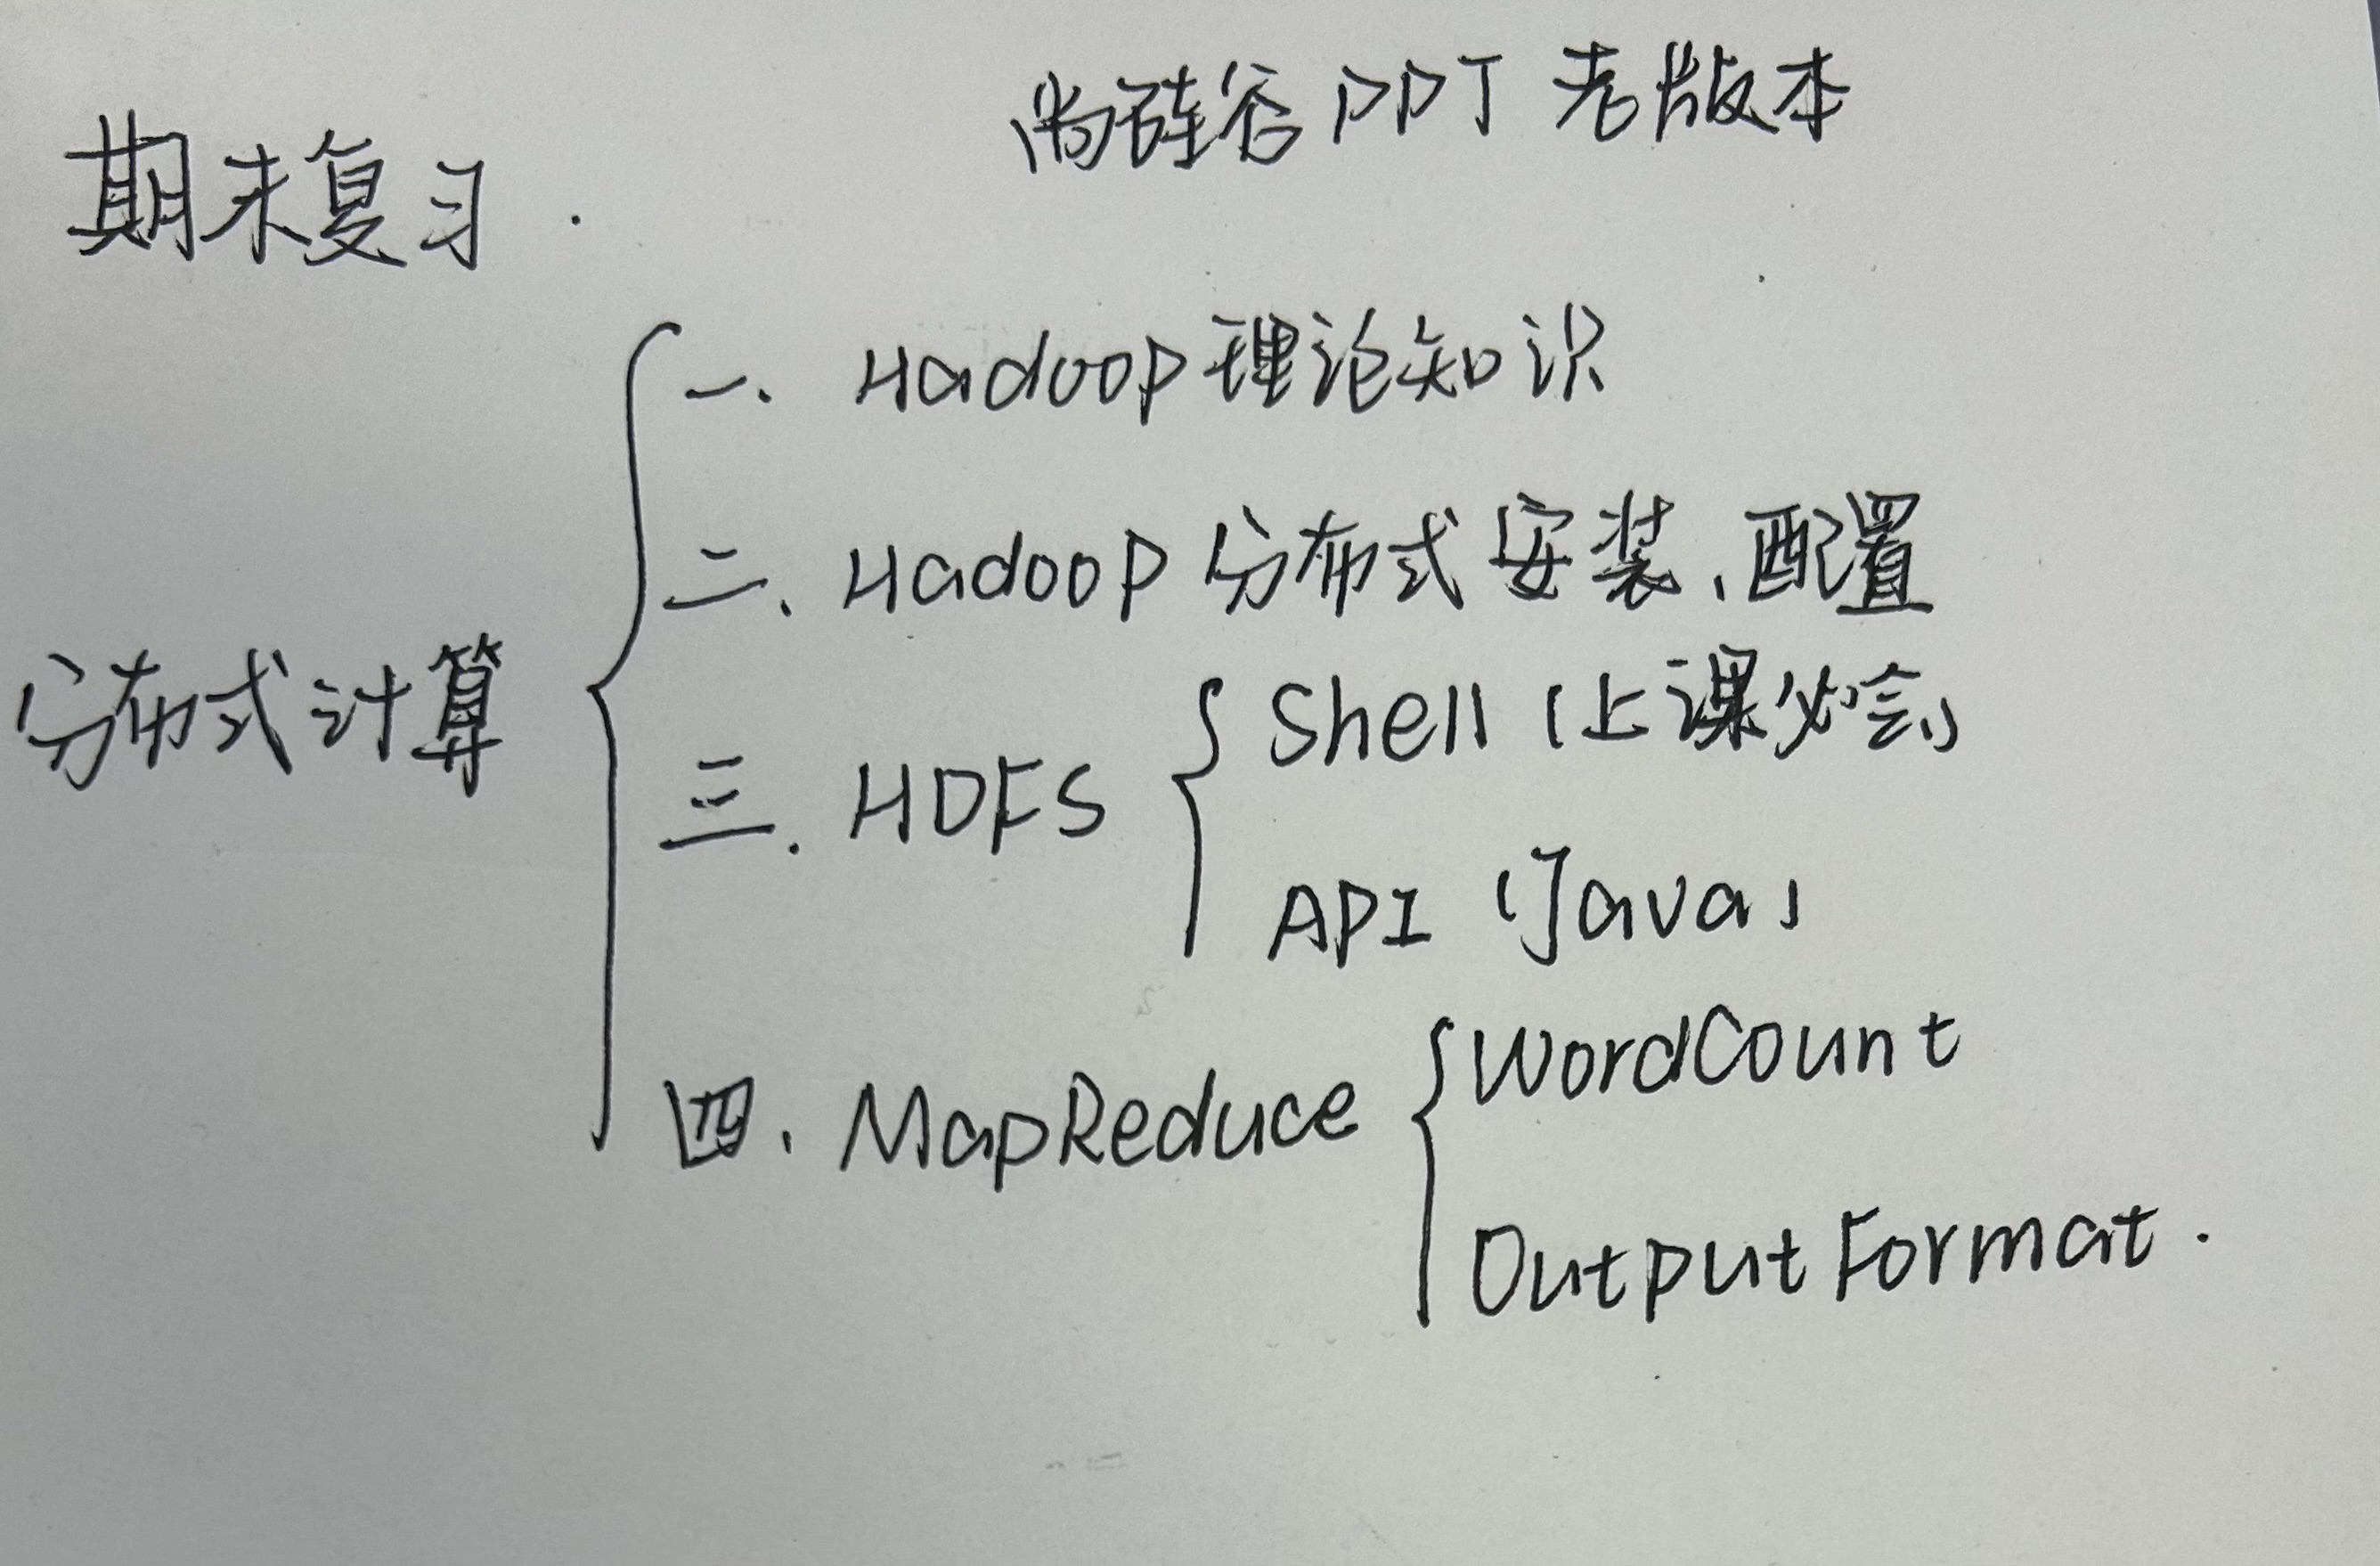 尚硅谷 PPT 老版本
期末复习.
一. Hadoop理论知识
二. Hadoop 分布式安装、配置
分布式计算
三. HDFS
Shell (上课必会)
API (Java)
四. MapReduce
WordCount
OutputFormat.